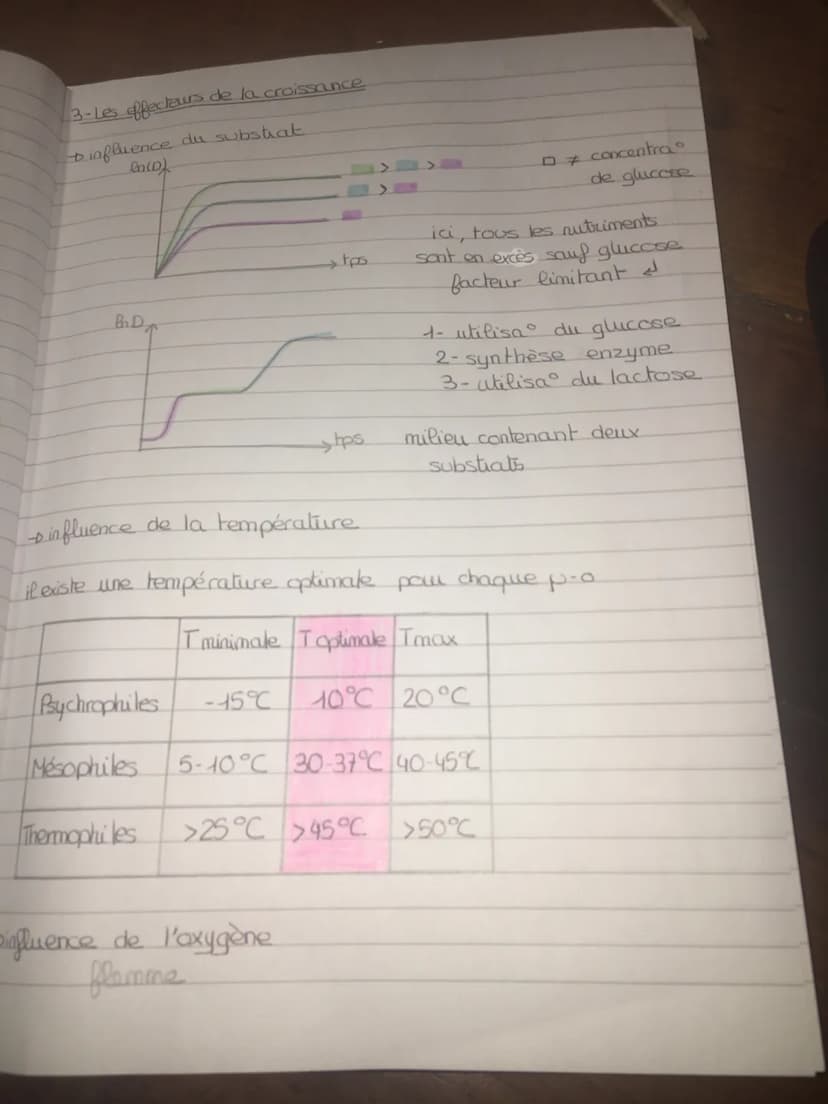 3-Les effecteurs de la croissance
→ influence du substrat
ln(D)
> >
>
□ ≠ concentra°
de glucose
ici, tous les nutriments
sont en excès sauf glucose
facteur limitant ↲
tps
ln D
1- utilisa° du glucose
2- synthèse enzyme
3- utilisa° du lactose
tps
milieu contenant deux
substrats
→ influence de la température
il existe une température optimale pour chaque µ-o
T minimale T optimale Tmax
Psychrophiles -15°C 10°C 20°C
Mésophiles 5-10°C 30-37°C 40-45°C
Thermophiles >25°C >45°C >50°C
influence de l'oxygène
flamme